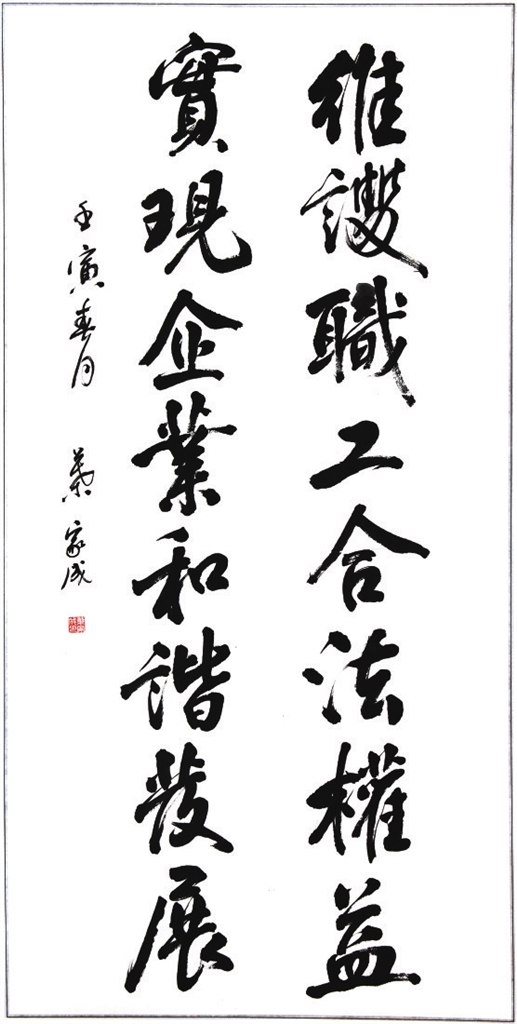 維護職工合法權益
實現企業和諧發展
壬寅春月 葉家成